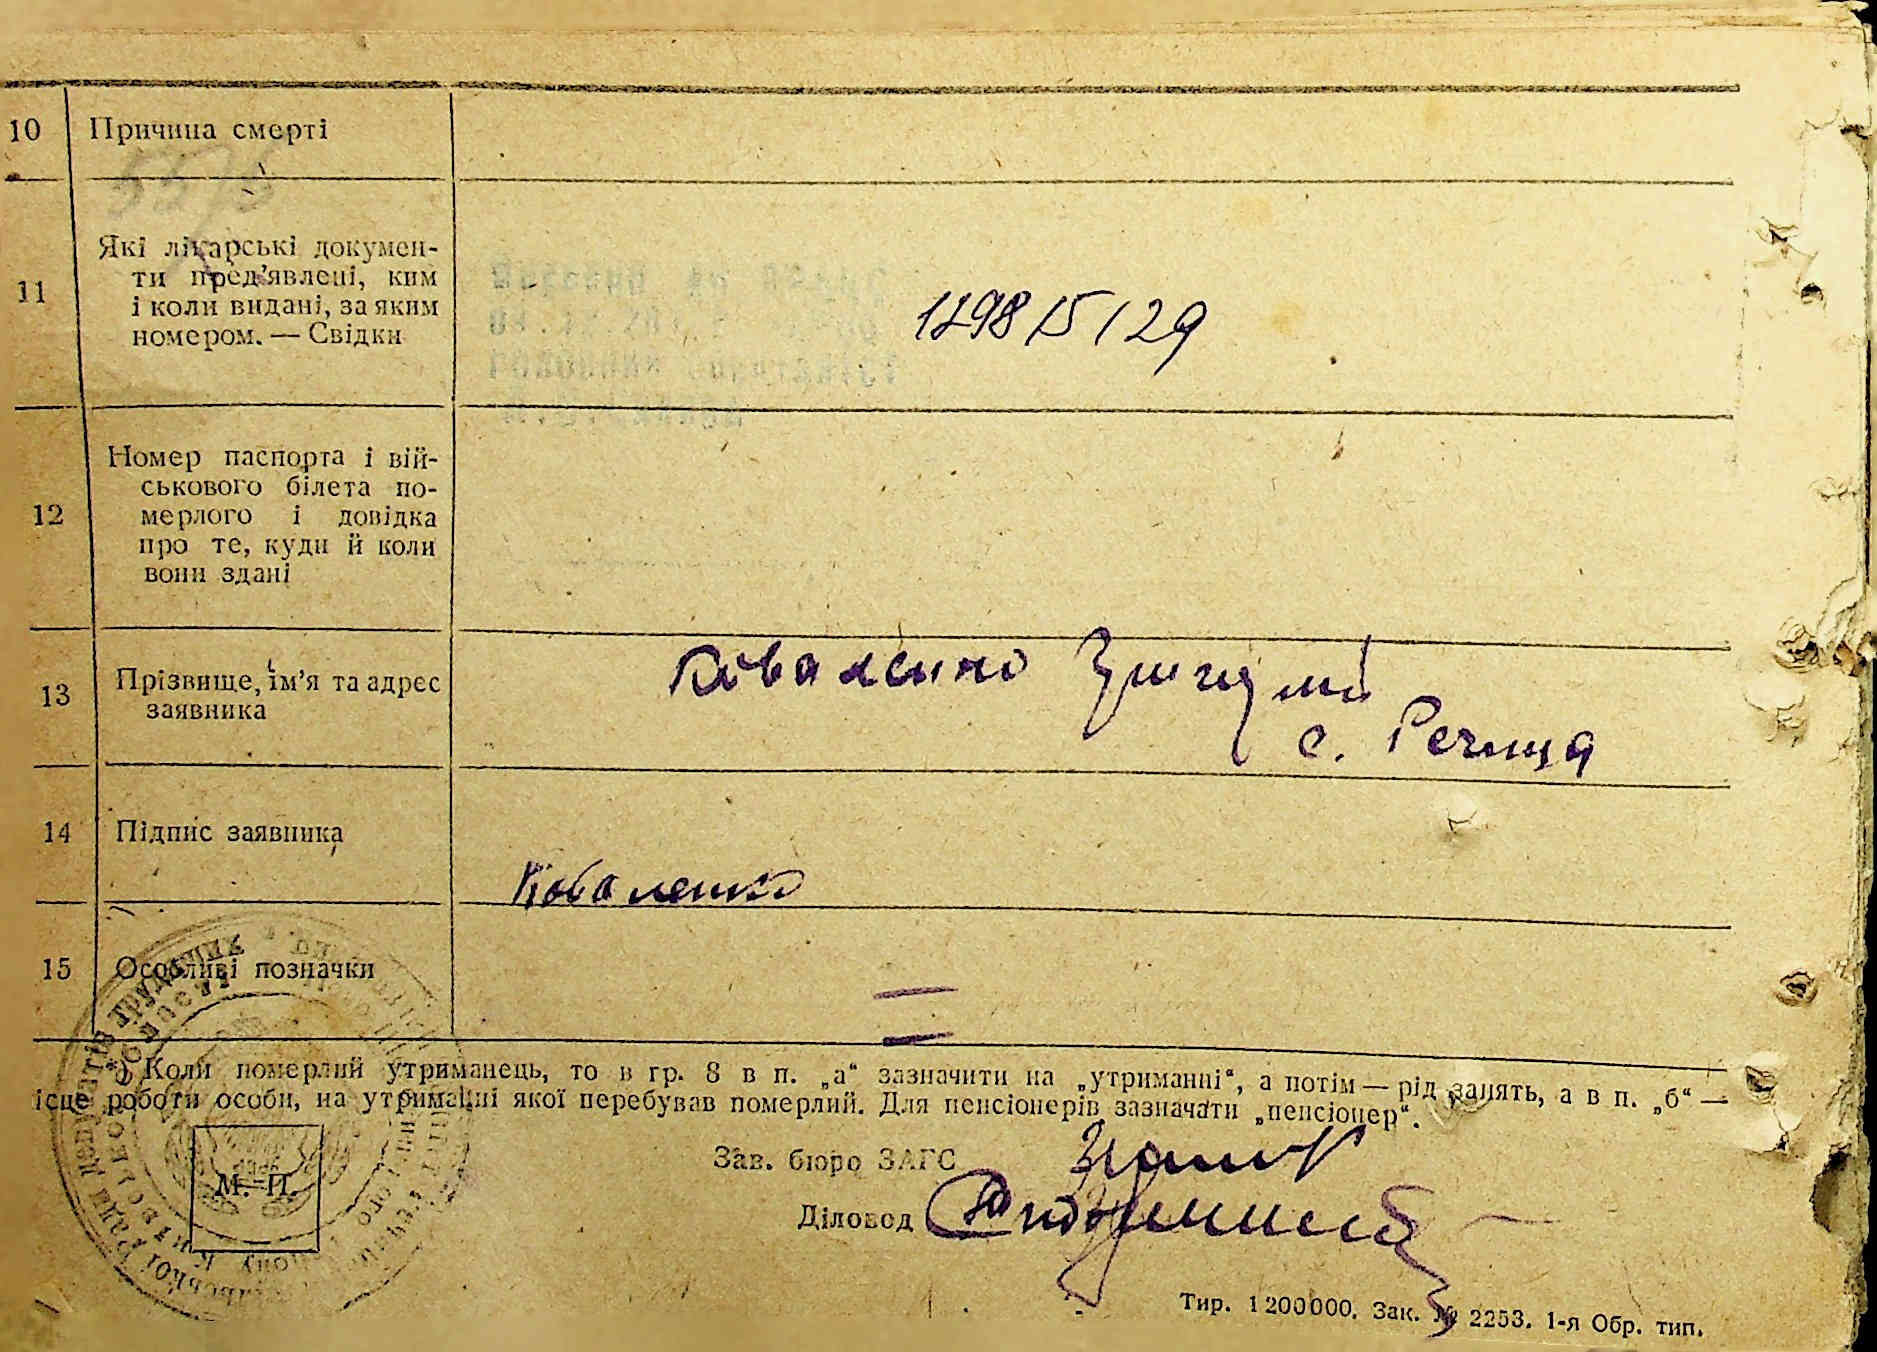 10 Причина смерті
11 Які лікарські докумен-
ти пред’явлені, ким
і коли видані, за яким
номером. — Свідки
1298/5/29
12 Номер паспорта і вій-
ськового білета по-
мерлого і довідка
про те, куди й коли
вони здані
13 Прізвище, ім’я та адрес
заявника
Коваленко
с. Речица
14 Підпис заявника
Коваленко
15 Особливі позначки
*) Коли померлий утриманець, то в гр. 8 в п. „а“ зазначити на „утриманні“, а потім — рід занять, а в п. „б“ —
ісце роботи особи, на утриманні якої перебував померлий. Для пенсіонерів зазначати „пенсіонер“.
М. П.
Зав. бюро ЗАГС
Діловод
Тир. 1200000. Зак. № 2253. 1-я Обр. тип.